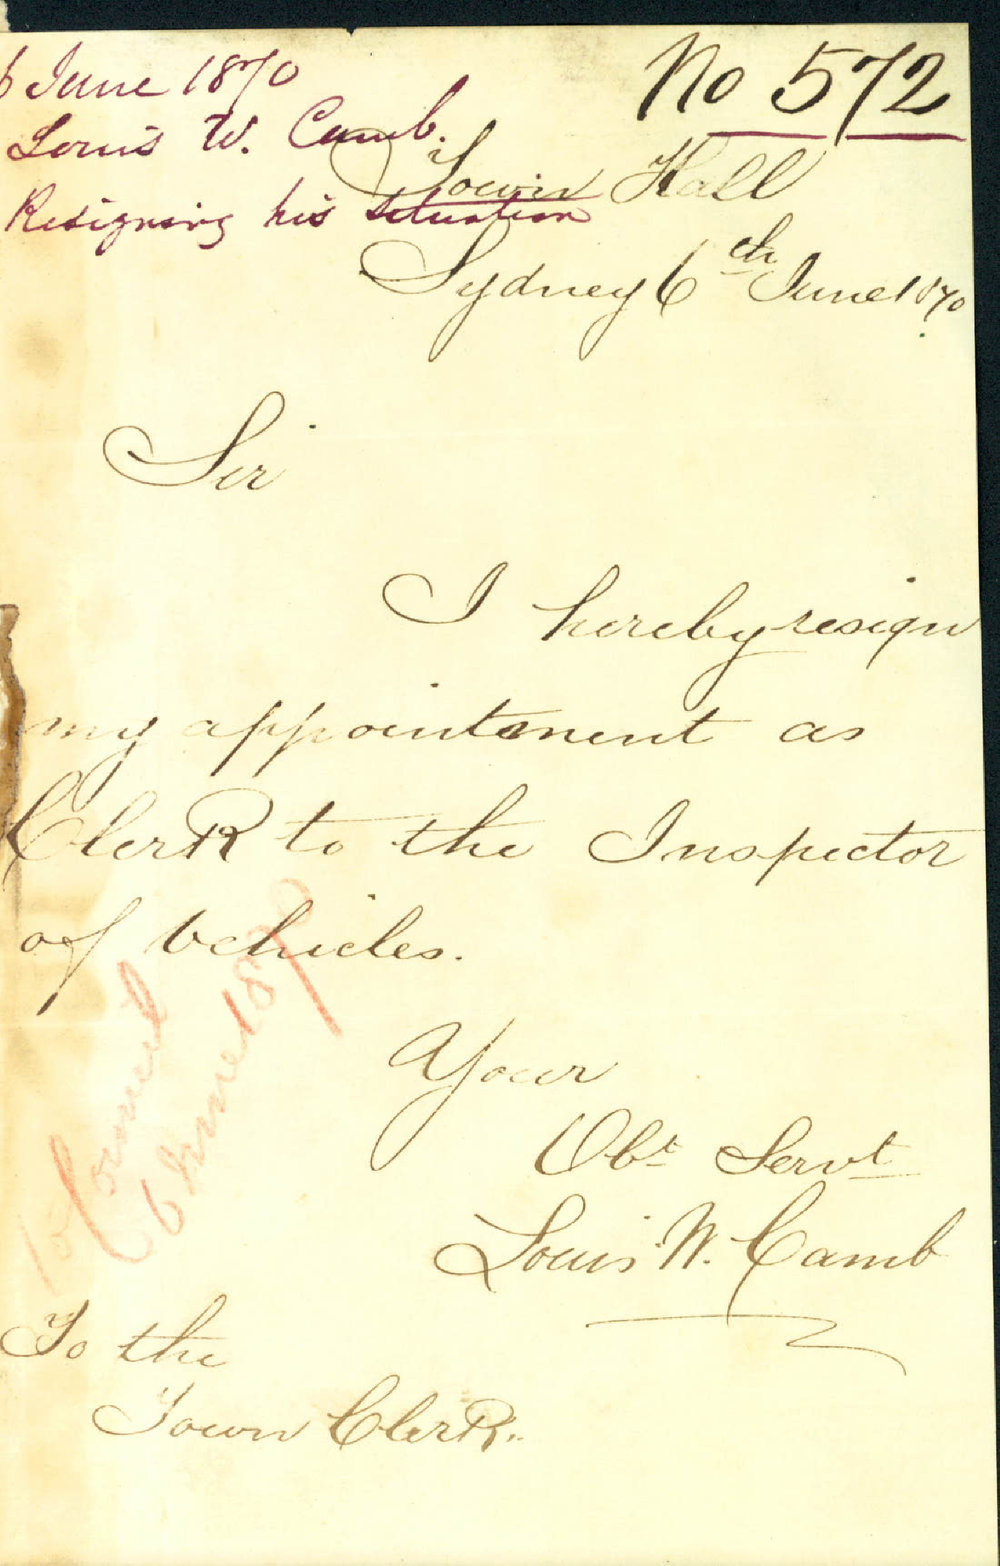 6 June 1870
Louis W. Camb.
Resigning his situation
No 572
Town Hall
Sydney 6th June 1870
Sir
I hereby resign
my appointment as
Clerk to the Inspector
of Vehicles.
Your
Obt Servt
Louis W. Camb
To the
Town Clerk.
Council
6 June 1870